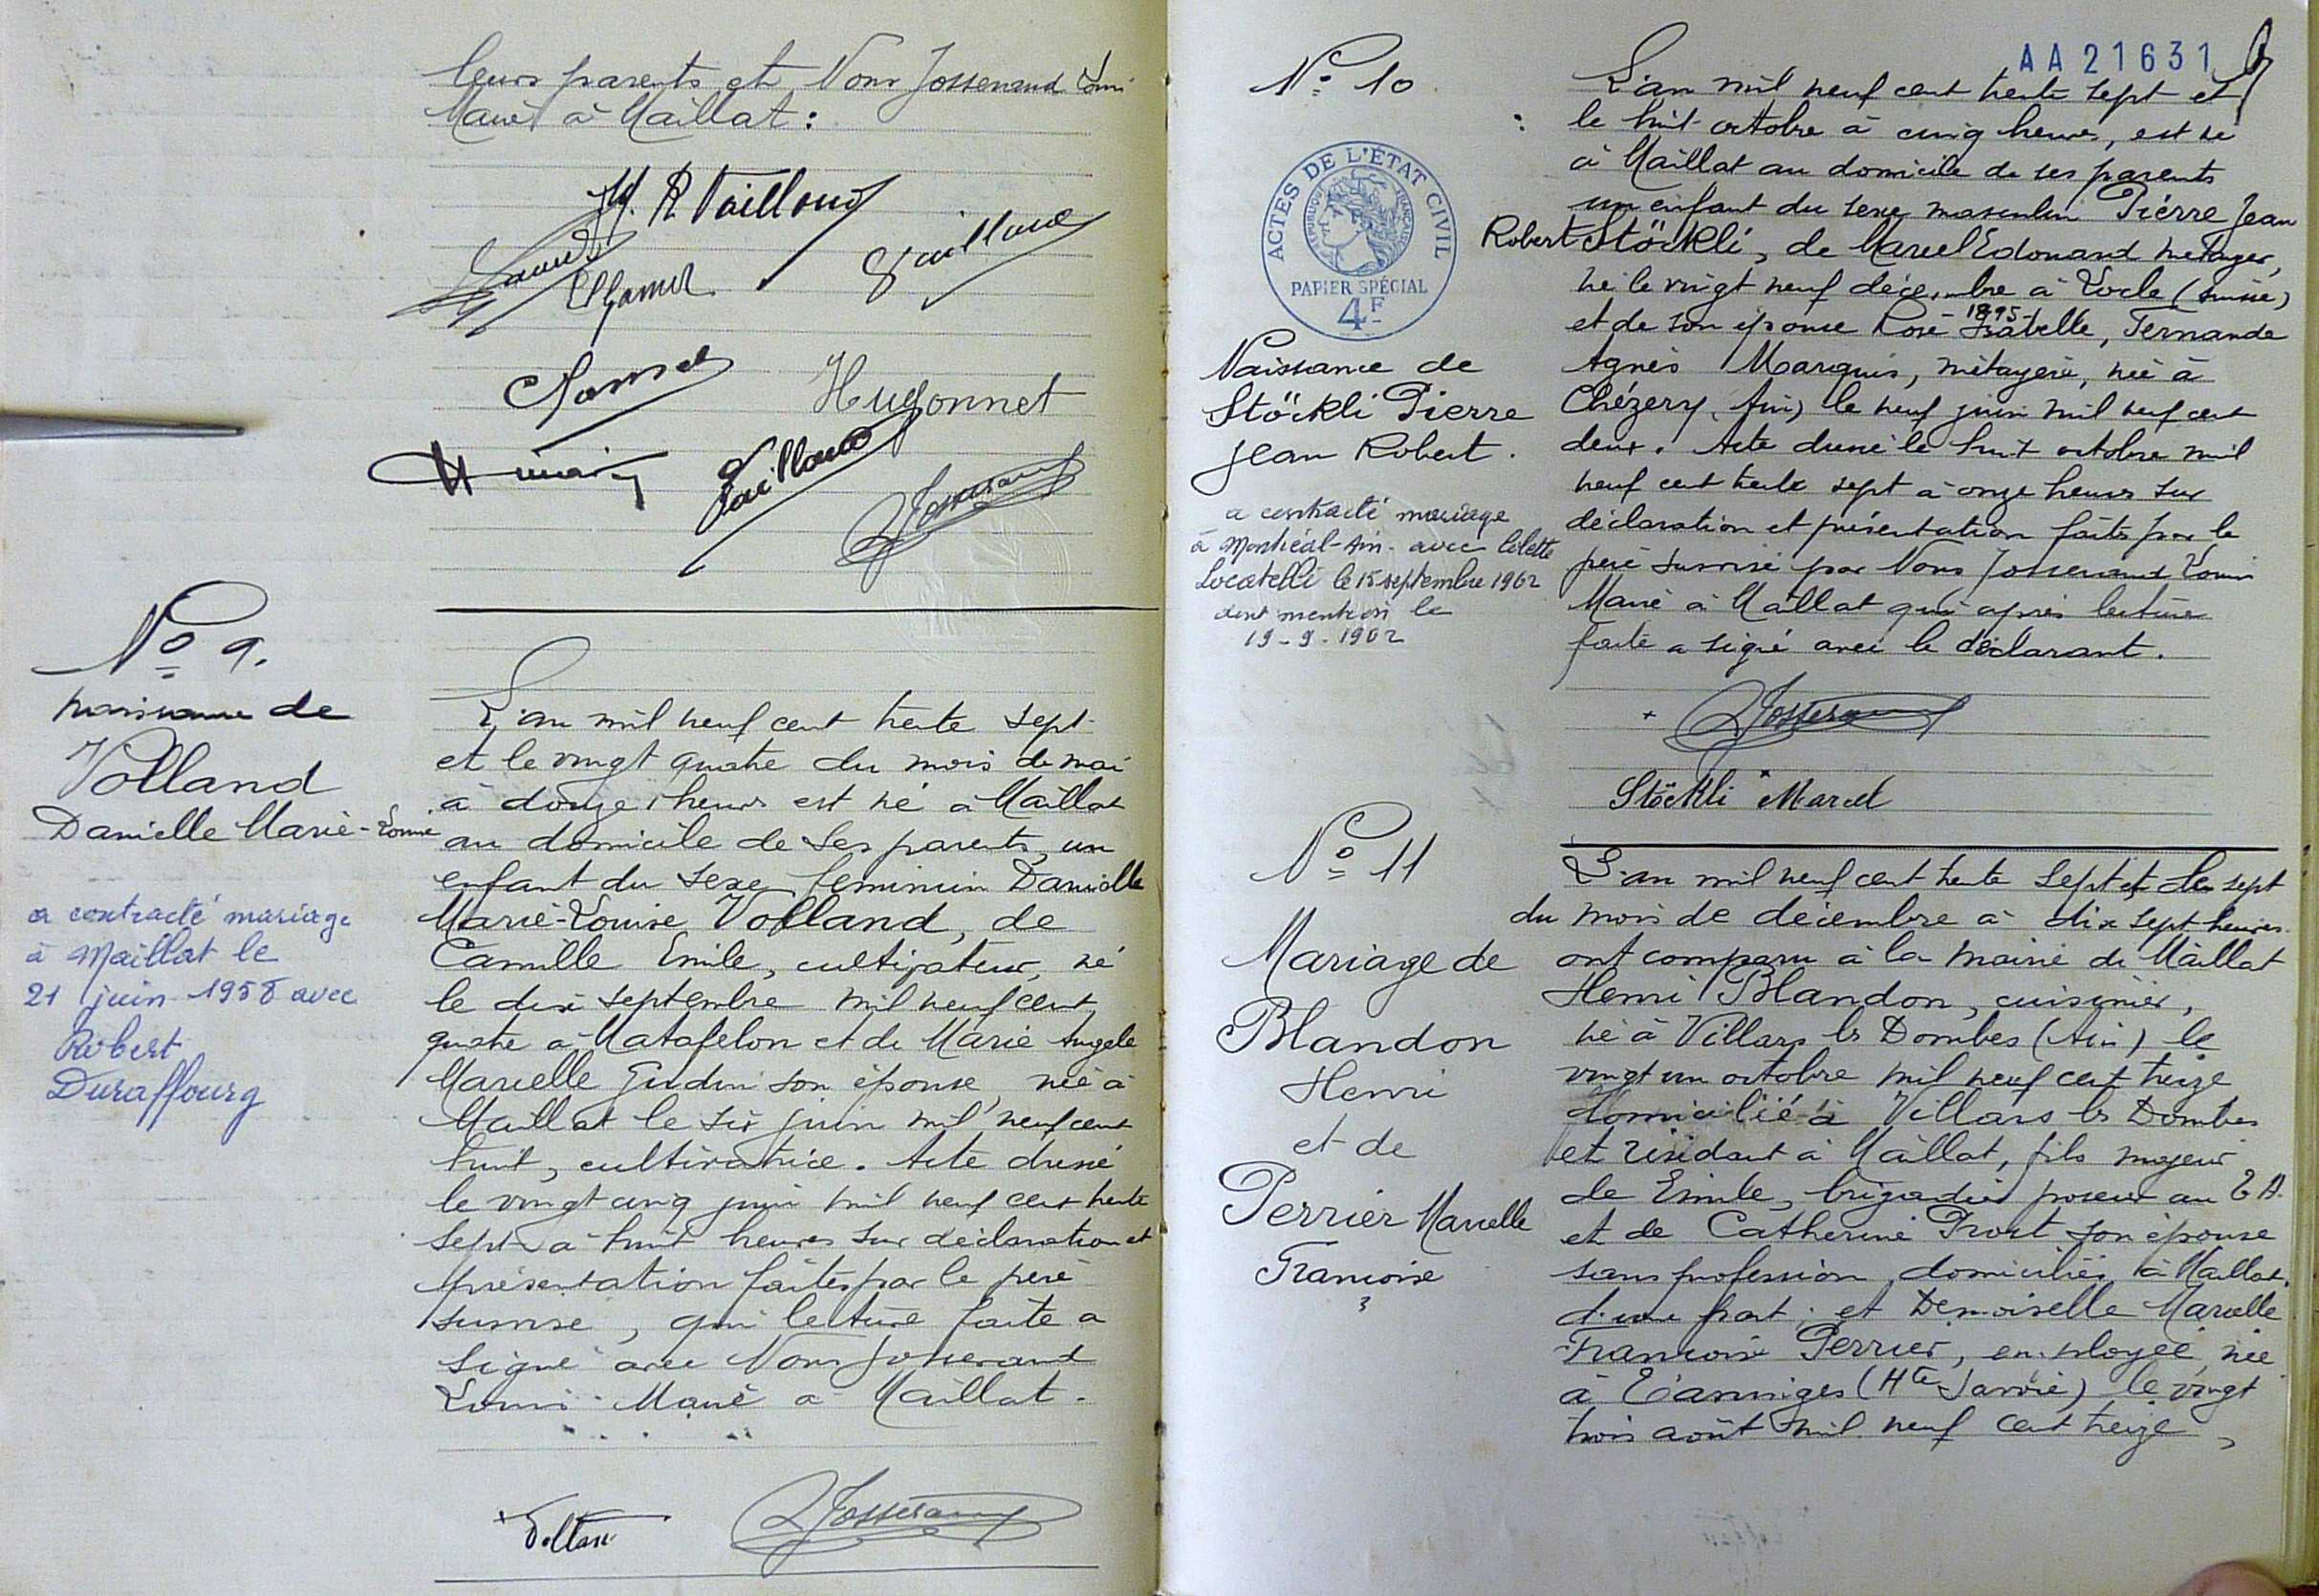 leurs parents et Nous Josserand Louis
Maire à Maillat :
R Vailloud
Vailloud
Hugonnet
Vailloud
Josserand
N° 9.
naissance de
Volland
Danielle Marie-Louise
a contracté mariage
à Maillat le
21 juin 1958 avec
Robert
Duraffourg
L'an mil neuf cent trente sept
et le vingt quatre du mois de mai
à douze heures est né à Maillat
au domicile de ses parents, un
enfant du sexe feminin Danielle
Marie-Louise Volland, de
Camille Emile, cultivateur, né
le dix septembre mil neuf cent
quatre à Matafelon et de Marie Angele
Marcelle Gudin son épouse, née à
Maillat le six juin mil neuf cent
huit, cultivatrice. Acte dressé
le vingt cinq juin mil neuf cent trente
sept à huit heures sur déclaration et
présentation faites par le père
susvisé, qui lecture faite a
signé avec Nous Josserand
Louis Maire à Maillat.
Volland
Josserand
AA21631
N° 10
ACTES DE L'ÉTAT CIVIL
RÉPUBLIQUE FRANÇAISE
PAPIER SPÉCIAL
4F
Naissance de
Stöckli Pierre
Jean Robert.
a contracté mariage
à Montréal-Ain. avec Colette
Locatelli le 15 septembre 1962
dont mention le
19-9-1962
L'an mil neuf cent trente sept et
le huit octobre à cinq heures, est né
à Maillat au domicile de ses parents
un enfant du sexe masculin Pierre Jean
Robert Stöckli, de Marcel Edouard métayer,
né le vingt neuf décembre à Locle (Suisse)
-1895-
et de son épouse Rose Isabelle, Fernande
Agnès Marquis, métayère, née à
Chézery (Ain) le neuf juin mil neuf cent
deux. Acte dressé le huit octobre mil
neuf cent trente sept à onze heures sur
déclaration et présentation faites par le
père susvisé par Nous Josserand Louis
Maire à Maillat qui après lecture
faite a signé avec le déclarant.
Josserand
Stöckli Marcel
N° 11
Mariage de
Blandon
Henri
et de
Perrier Marcelle
Françoise
L'an mil neuf cent trente sept et le sept
du mois de décembre à dix sept heures
ont comparu à la mairie de Maillat
Henri Blandon, cuisinier,
né à Villars les Dombes (Ain) le
vingt un octobre mil neuf cent treize
domicilié à Villars les Dombes
et résidant à Maillat, fils majeur
de Emile, brigadier poseur au
et de Catherine Prost son épouse
sans profession, domiciliés à Maillat.
d'une part ; et Demoiselle Marcelle
Françoise Perrier, employée, née
à (Hte Savoie) le vingt
trois août mil neuf cent treize,